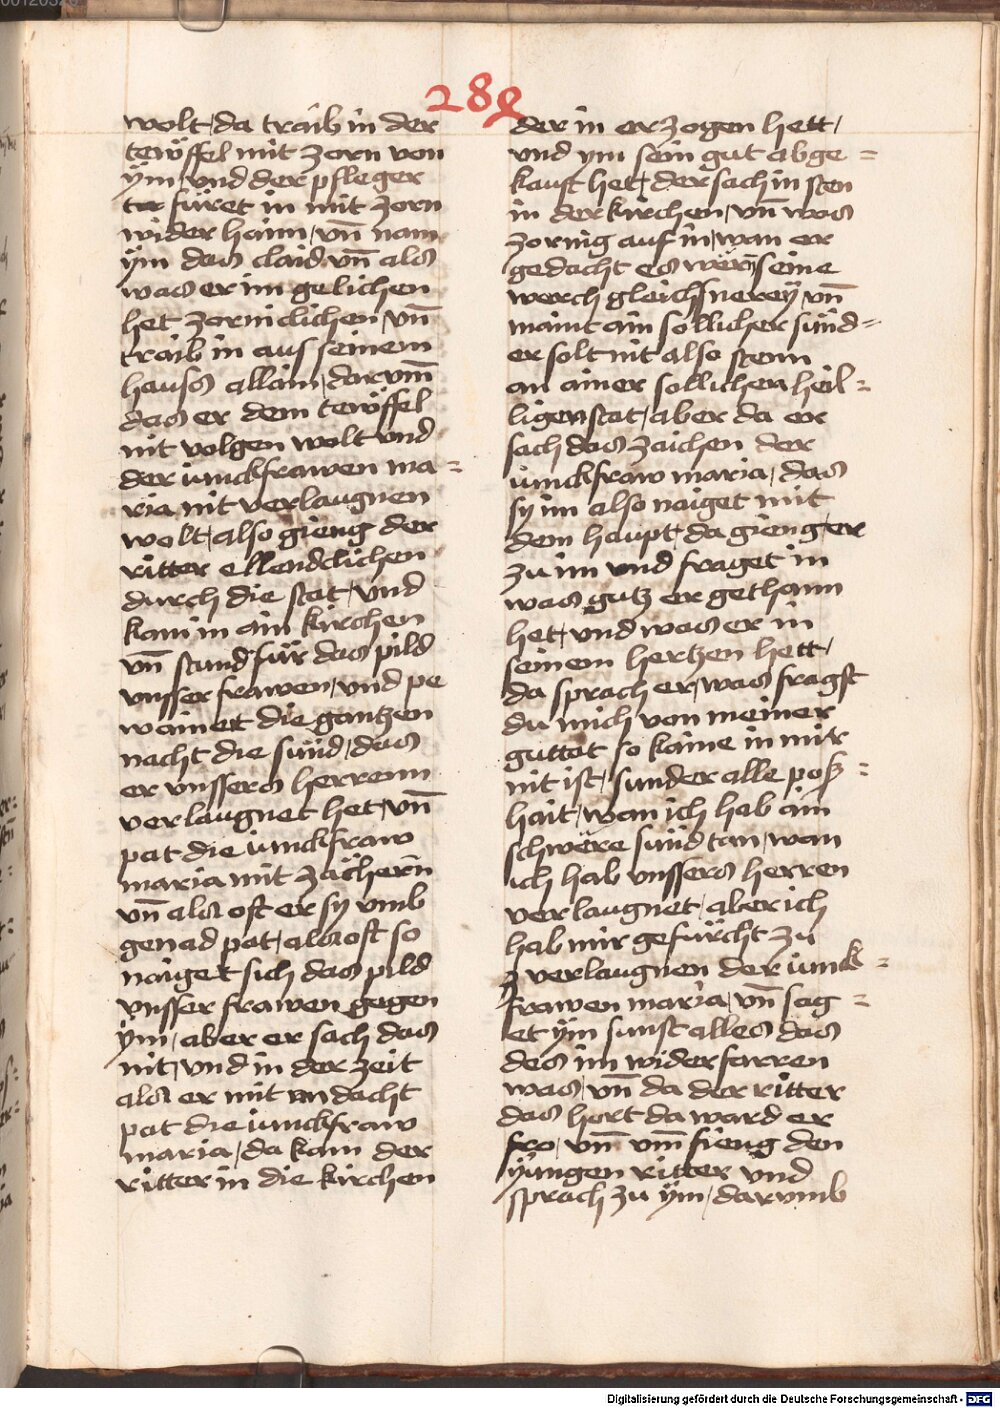 288
wolt / da traib in der
tewffel mit zorn von
ÿm / vnd der pfleger
füret in mit zorn
wider haim / vn̄ nam
ÿm das claid vn̄ als
was er im gelichen
het zorniclichen / vn̄
traib in aus seinem
hauss allain / darvm̄
das er dem tewffel
nit volgen wolt vnd
der iunckfrawen ma =
ria nit verlaugnen
wolt / also gieng der
ritter ellendclichen
durch die stat / vnd
kam in ain kirchen
vn̄ stund für das pild
vnsser frawen / vnd pe
wainet die gantzen
nacht die sünd / das
er vnssers herrenn
verlaugnet het / vn̄
pat die iunckfraw
maria mit zächern̄
vn̄ als oft er sy vmb
genad pat / als oft so
naiget sich das pild
vnsser frawen gegen
ÿm / aber er sach das
nit / vnd in der zeit
als er mit andacht
pat die iunckfraw
maria / da kam der
ritter in die kirchen
der in erzogen hett /
vnd ym sein gut abge =
kauft het / der sach in sten
in der kirchen / vn̄ was
zornig auf in / wan er
gedacht es wern̄ seine
werch gleichsnereÿ / vn̄
maint ain sollicher sünd =
er solt nit also stenn
an ainer sollichen heil =
ligen stat / aber da er
sach das zaichen der
iunckfraw maria / das
sy im also naiget mit
dem haupt / da gieng er
zu im vnd fraget in
was gutz er gethann
het / vnd was er in
seinem hertzen hett /
da sprach er / was fragst
du mich von meiner
guttat so kaine in mir
nit ist / sunder alle poß =
hait / wan ich hab ain
schwëre sünd tan / wan
ich hab vnssers herren
verlaugnet / aber ich
hab mir gefürcht zu
verlaugnen der iunck =
frawen maria / vn̄ sag =
et ÿm sunst alles das
des im widerfarren
was / vn̄ da der ritter
das hort da ward er
fro / vn̄ vm̄ fieng den
ÿungen ritter vnd
sprach zu ÿm / darvmb
Digitalisierung gefördert durch die Deutsche Forschungsgemeinschaft - DFG